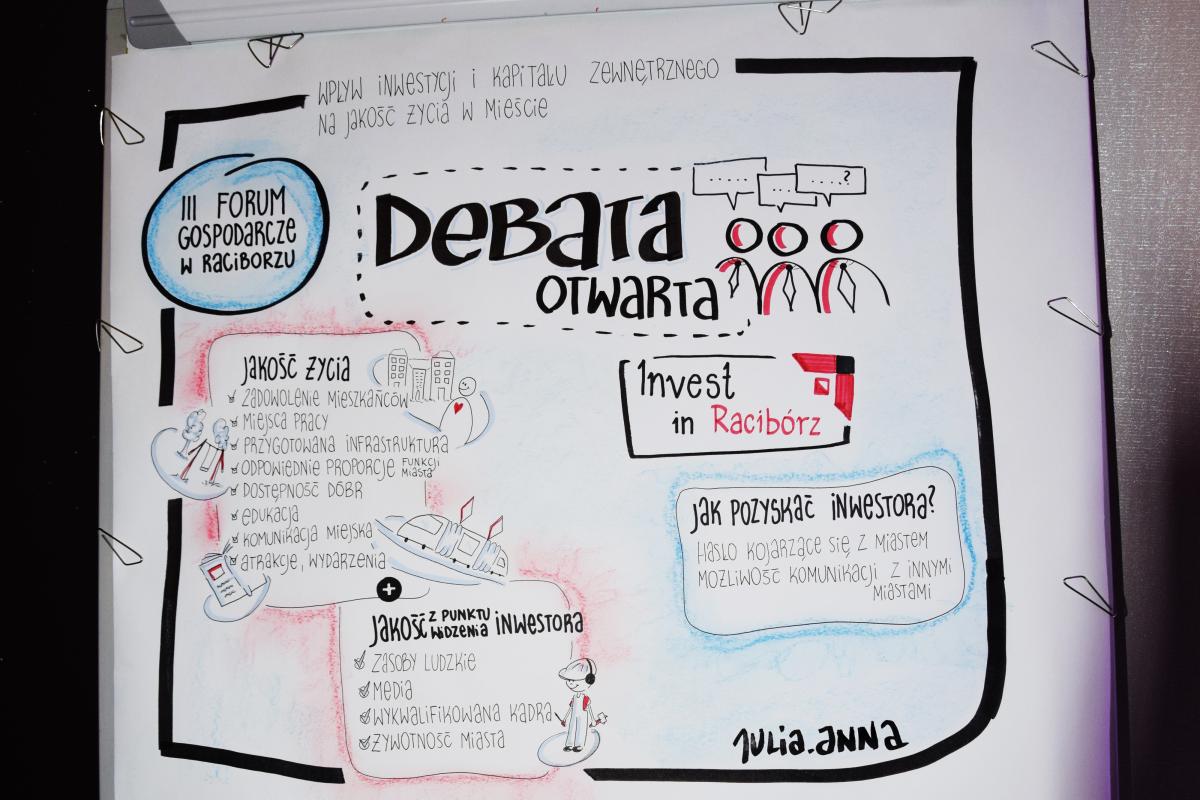 WPŁYW INWESTYCJI I KAPITAŁU ZEWNĘTRZNEGO
NA JAKOŚĆ ŻYCIA W MIEŚCIE
III FORUM
GOSPODARCZE
W RACIBORZU
DEBATA
OTWARTA
.....
....
....?
JAKOŚĆ ŻYCIA
ZADOWOLENIE MIESZKAŃCÓW
MIEJSCA PRACY
PRZYGOTOWANA INFRASTRUKTURA
ODPOWIEDNIE PROPORCJE FUNKCJI MIASTA
DOSTĘPNOŚĆ DÓBR
EDUKACJA
KOMUNIKACJA MIEJSKA
ATRAKCJE, WYDARZENIA
+
JAKOŚĆ Z PUNKTU WIDZENIA INWESTORA
ZASOBY LUDZKIE
MEDIA
WYKWALIFIKOWANA KADRA
ŻYWOTNOŚĆ MIASTA
Invest
in Racibórz
JAK POZYSKAĆ INWESTORA?
HASŁO KOJARZĄCE SIĘ Z MIASTEM
MOŻLIWOŚĆ KOMUNIKACJI Z INNYMI
MIASTAMI
JULIA.ANNA